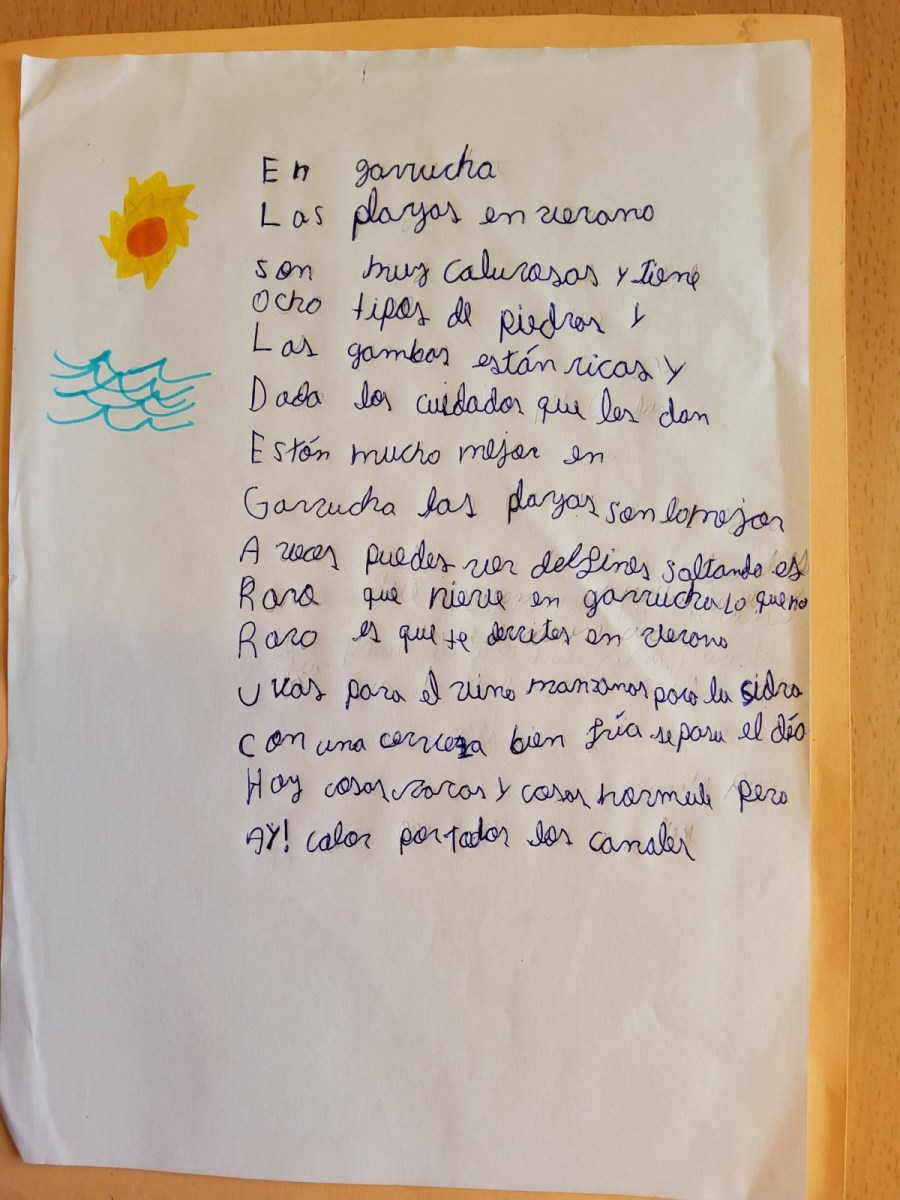 En garrucha
Las playas en verano
son muy calurosas y tiene
Ocho tipos de piedras y
Las gambas están ricas y
Dada los cuidados que les dan
Están mucho mejor en
Garrucha las playas son lo mejor
A veces puedes ver delfines saltando es
Raro que nieve en garrucha lo que no
Raro es que te derrites en verano
Uvas para el vino manzanas para la sidra
Con una cerveza bien fría se pasa el día
Hay cosas raras y cosas normale pero
AY! calor por todos los canales